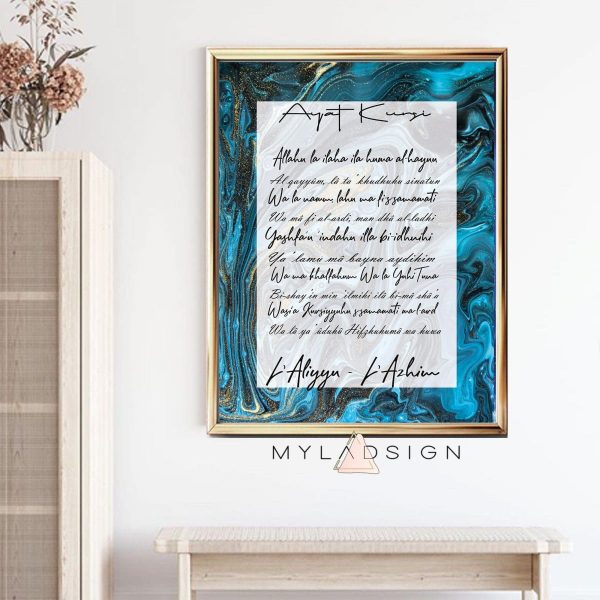 Ayat Kursi
Allahu la ilaha ila huwa al hayyu
Al qayyūm, lā ta'khudhuhu sinatun
Wa la nawm, lahu ma fi s samawati
Wa mā fi al-ardi, man dhā al-ladhi
Yashfa'u 'indahu illa bi-idhnihi
Ya'lamu mā bayna aydihim
Wa ma khalfahum Wa la Yuhituna
Bi-shay'in min 'ilmihi ilā bi-mā shā'a
Wasi'a Kursiyyuhu s samawati wa l ard
Wa lā ya'ūduhū Hifzhuhumā wa huwa
L'Aliyyu - L'Azhim
MYLADSIGN